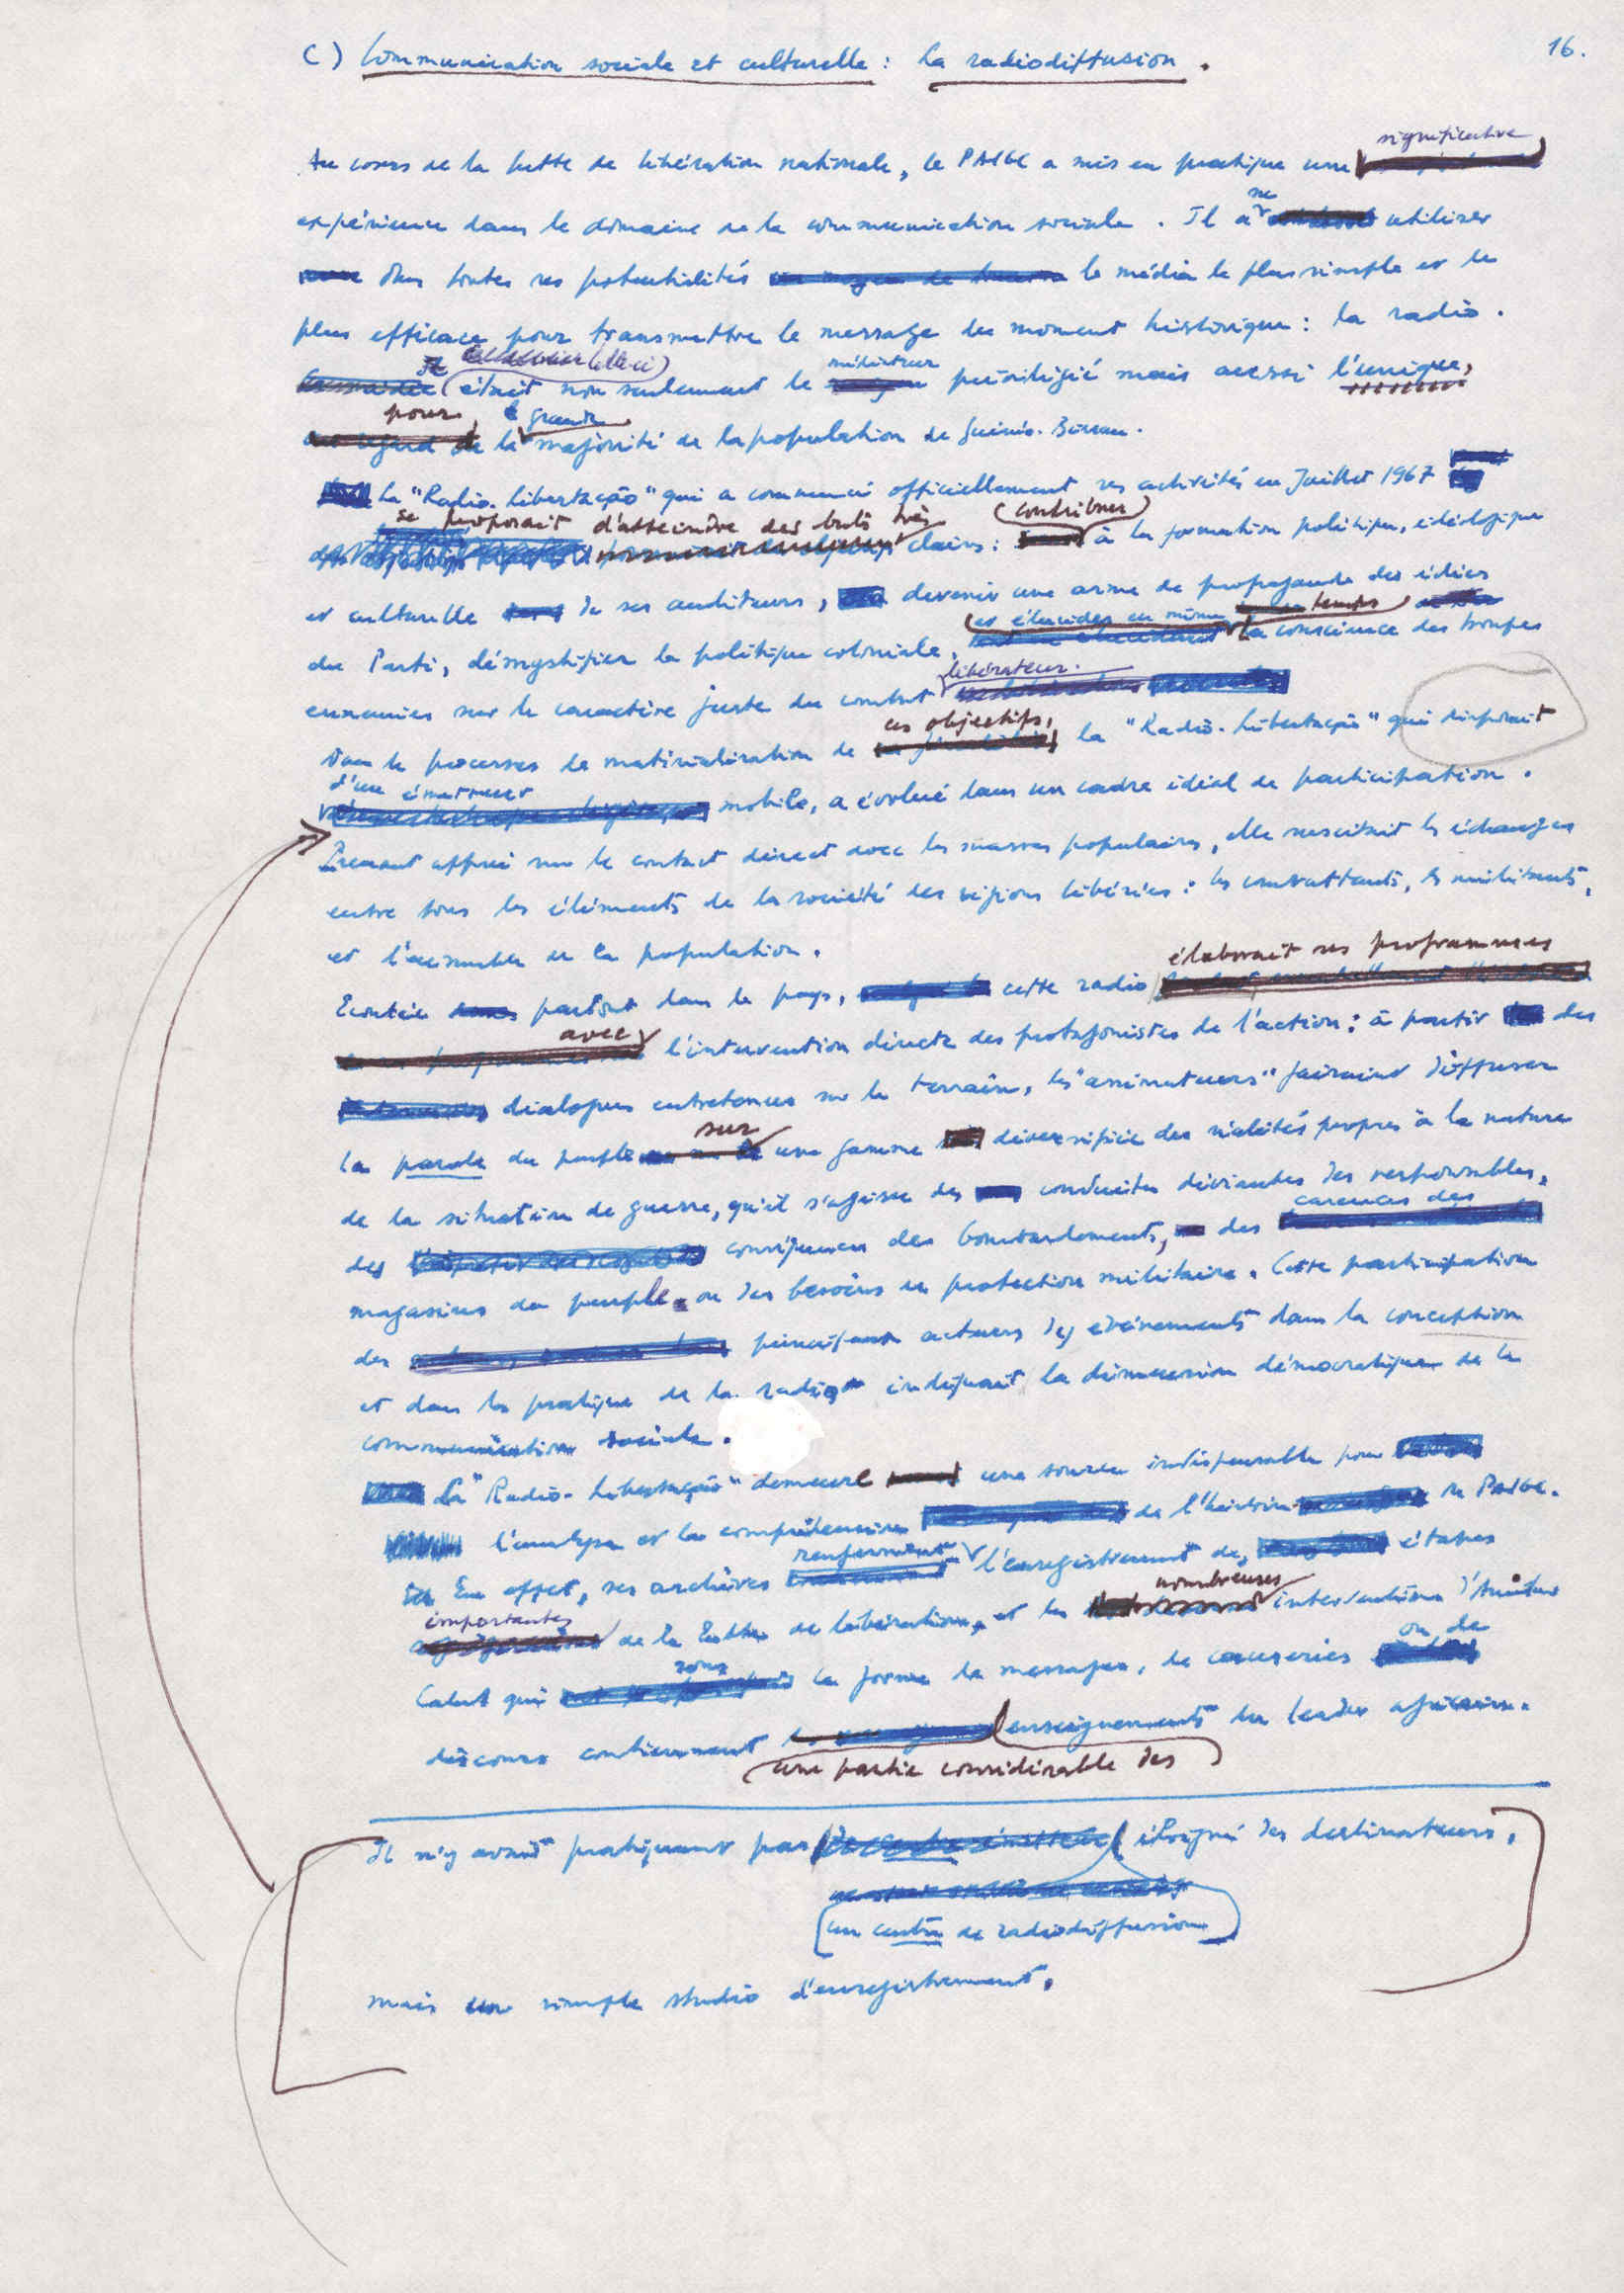 16.
C) Communication sociale et culturelle : La radiodiffusion.
significative
Au cours de la lutte de libération nationale, le PAIGC a mis en pratique une
expérience dans le domaine de la communication sociale. Il a su utiliser
dans toutes ses potentialités le média le plus simple et le
plus efficace pour transmettre le message du moment historique : la radio.
médiateur
était non seulement le privilégié mais aussi l'unique,
pour grande
la majorité de la population de Guinée-Bissau.
La "Radio-Libertação" qui a commencé officiellement ses activités en Juillet 1967
se proposait d'atteindre des buts très contribuer
clairs : à la formation politique, idéologique
et culturelle de ses auditeurs, devenir une arme de propagande des idées
et élucider en même temps
du Parti, démystifier la politique coloniale, la conscience des troupes
libérateur.
ennemies sur le caractère juste du combat
ces objectifs,
Dans le processus de matérialisation de la "Radio-Libertação" qui disposait
d'un émetteur
mobile, a évolué dans un cadre idéal de participation.
Prenant appui sur le contact direct avec les masses populaires, elle suscitait les échanges
entre tous les éléments de la société des régions libérées : les combattants, les militants,
et l'ensemble de la population.
élaborait ses programmes
Ecoutée partout dans le pays, cette radio
avec
l'intervention directe des protagonistes de l'action : à partir des
dialogues entretenus sur le terrain, les "animateurs" faisaient diffuser
sur
la parole du peuple une gamme diversifiée des réalités propres à la nature
de la situation de guerre, qu'il s'agisse des conduites déviantes des responsables,
carences des
des conséquences des bombardements, des
magasins du peuple ou des besoins en protection militaire. Cette participation
des principaux acteurs des événements dans la conception
et dans la pratique de la radio indiquait la dimension démocratique de la
communication sociale.
La "Radio-Libertação" demeure une source indispensable pour
l'analyse et la compréhension de l'histoire du PAIGC.
renferment
En effet, ses archives l'enregistrement des étapes
importantes nombreuses
de la lutte de libération, et les interventions d'Amilcar
sous ou de
Cabral qui la forme de messages, de causeries
discours contiennent enseignements du leader africain.
une partie considérable des
Il n'y avait pratiquement pas éloigné des destinateurs,
un centre de radiodiffusion
mais un simple studio d'enregistrement.